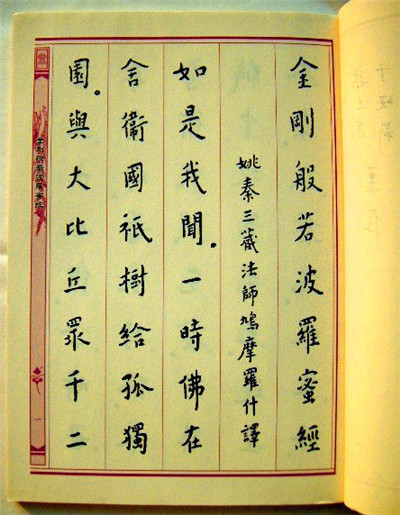 金剛般若波羅蜜經
姚秦三藏法師鳩摩羅什譯
如是我聞。一時佛在
舍衞國祇樹給孤獨
園。與大比丘眾千二
一